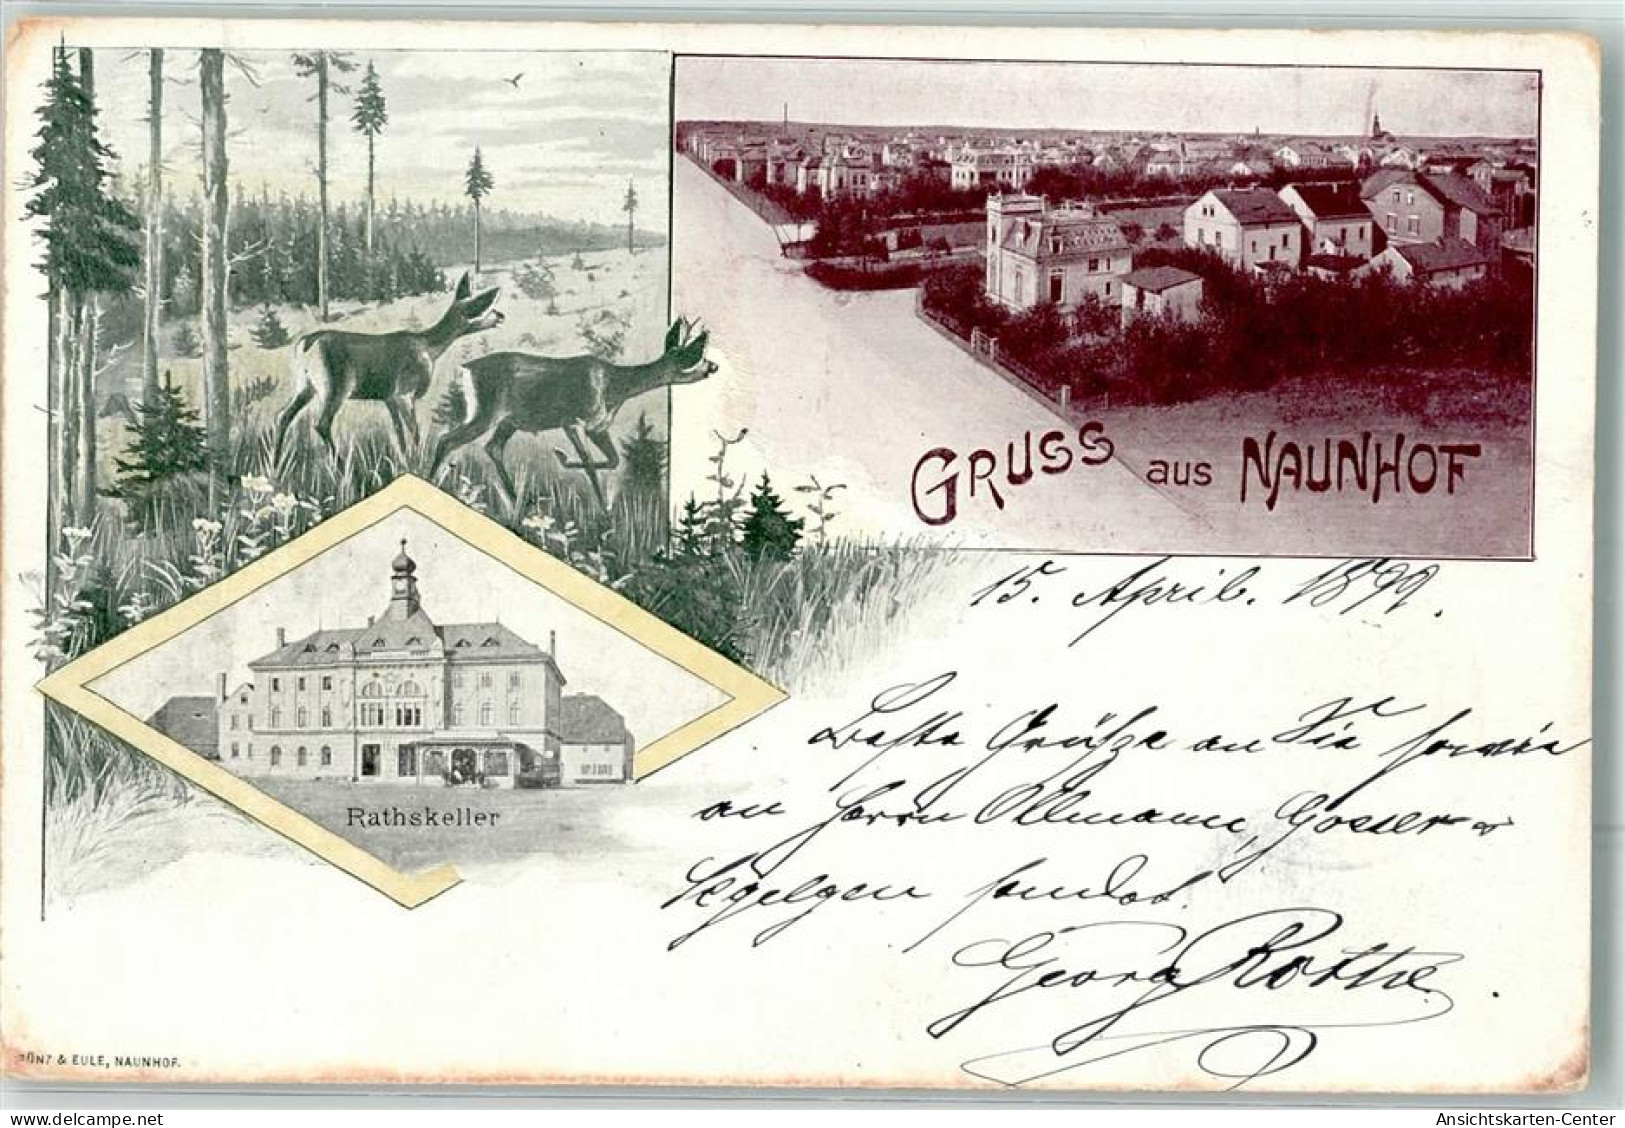 Gruss aus Naunhof
15. April. 1899.
Beste Grüße an Sie sowie
an Herrn Ollmann,
sendet
Georg Rothe.
Rathskeller
& EULE, NAUNHOF.
www.delcampe.net
Ansichtskarten-Center